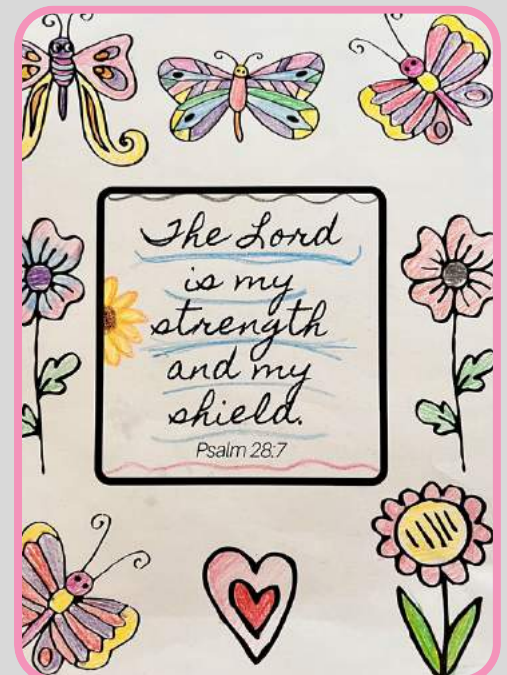 The Lord
is my
strength
and my
shield.
Psalm 28:7